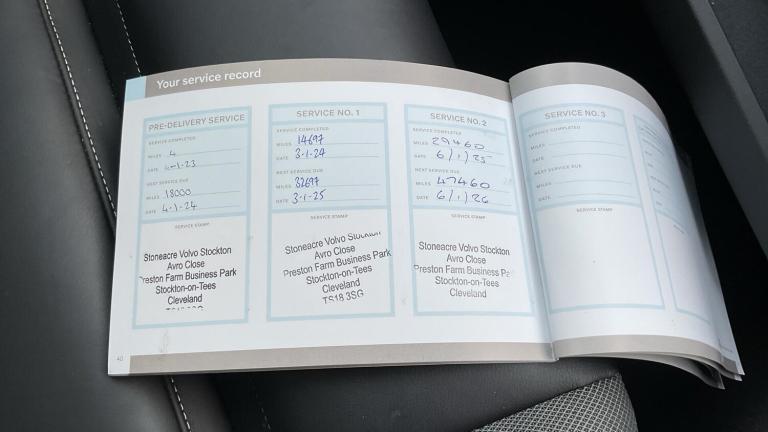 Your service record
PRE-DELIVERY SERVICE
SERVICE COMPLETED
MILES 4
DATE 4-1-23
NEXT SERVICE DUE
MILES 18000
DATE 4-1-24
SERVICE STAMP
Stoneacre Volvo Stockton
Avro Close
Preston Farm Business Park
Stockton-on-Tees
Cleveland
SERVICE NO. 1
SERVICE COMPLETED
MILES 14697
DATE 3-1-24
NEXT SERVICE DUE
MILES 32697
DATE 3-1-25
SERVICE STAMP
Stoneacre Volvo Stockton
Avro Close
Preston Farm Business Park
Stockton-on-Tees
Cleveland
TS18 3SG
SERVICE NO. 2
SERVICE COMPLETED
MILES 29460
DATE 6/1/25
NEXT SERVICE DUE
MILES 47460
DATE 6/1/26
SERVICE STAMP
Stoneacre Volvo Stockton
Avro Close
Preston Farm Business Pa
Stockton-on-Tees
Cleveland
SERVICE NO. 3
SERVICE COMPLETED
MILES
DATE
NEXT SERVICE DUE
MILES
DATE
SERVICE STAMP
40